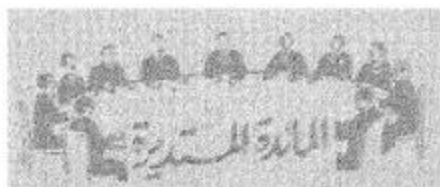 المائدة المستديرة